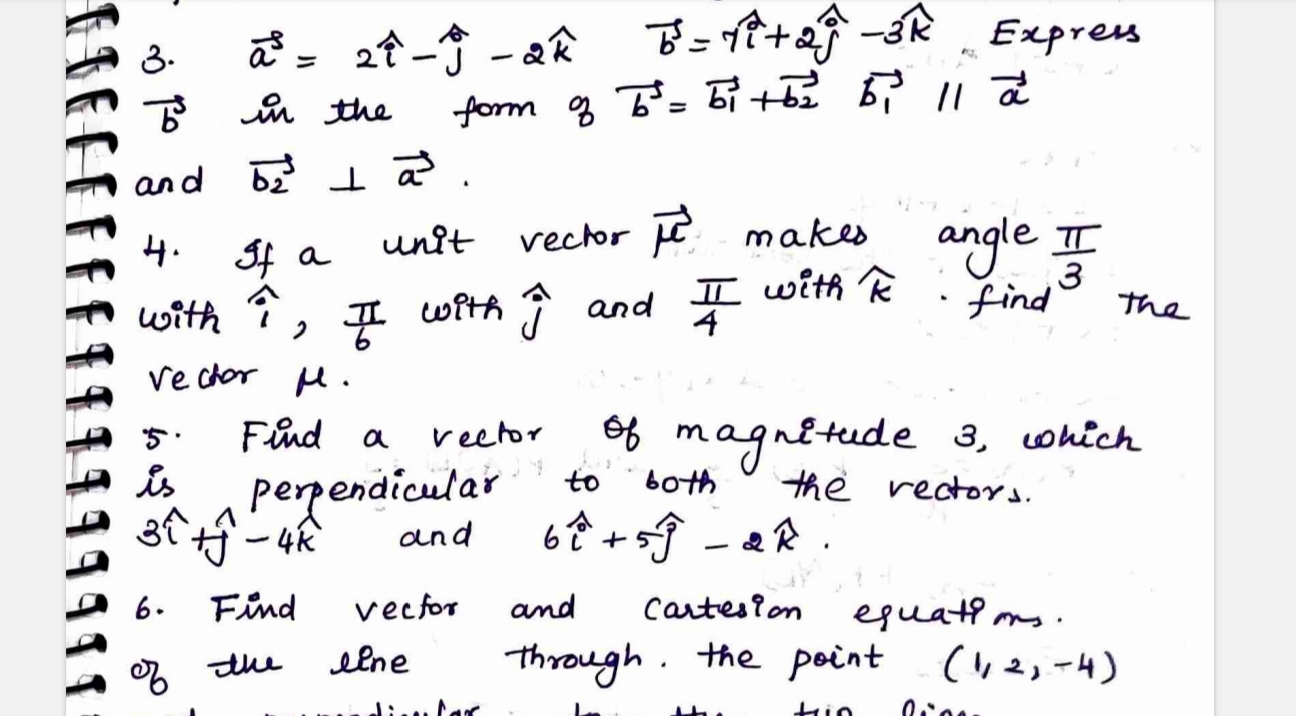 3. a⃗ = 2î - ĵ - 2k̂ b⃗ = 7î + 2ĵ - 3k̂ Express
b⃗ in the form of b⃗ = b⃗1 + b⃗2 b⃗1 || a⃗
and b⃗2 ⊥ a⃗ .
4. If a unit vector μ⃗ makes angle π/3
with î , π/6 with ĵ and π/4 with k̂ . find the
vector μ .
5. Find a vector of magnitude 3, which
is perpendicular to both the vectors.
3î + ĵ - 4k̂ and 6î + 5ĵ - 2k̂ .
6. Find vector and Cartesian equations.
of the line through . the point (1, 2, -4)